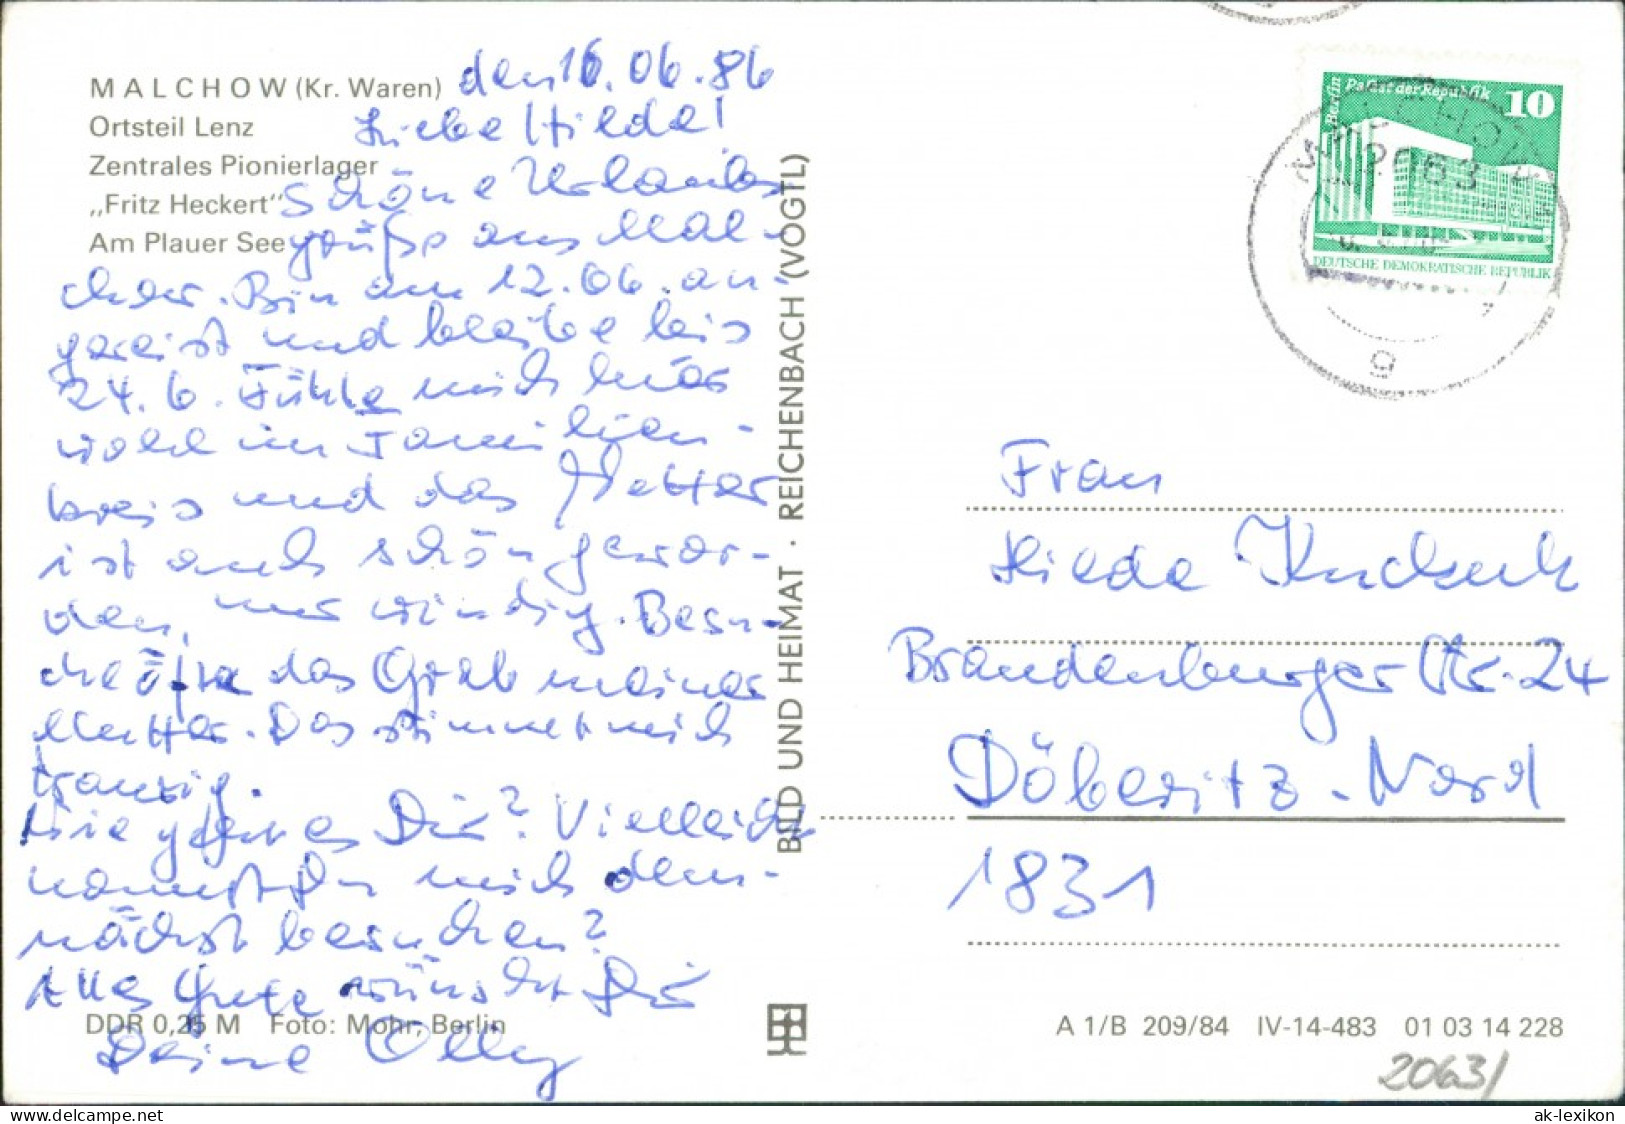 MALCHOW (Kr. Waren)
Ortsteil Lenz
Zentrales Pionierlager
„Fritz Heckert"
Am Plauer See
den 16.06.86
Liebe Hilda!
Schöne Urlaubs
grüße aus Mal-
chow. Bin am 12.06. an-
gereist und bleibe bis
24.6. Fühle mich hier
wohl im Familien-
kreis und das Wetter
ist auch schön gewor-
den, nur windig. Besu-
che öfter das Grab meiner
Mutter. Das stimmt mich
traurig.
Wie geht es Dir? Vielleicht
kommst Du mich dem-
nächst besuchen?
Alles Gute wünscht Dir
Deine Olly
DDR 0,25 M Foto: Mohr, Berlin
BILD UND HEIMAT · REICHENBACH (VOGTL)
Berlin Palast der Republik 10
DEUTSCHE DEMOKRATISCHE REPUBLIK
MALCHOW
2063
g
Frau
Hilda
Brandenburger Str. 24
Döberitz-Nord
1831
A 1/B 209/84 IV-14-483 01 03 14 228
2063/
www.delcampe.net
ak-lexikon